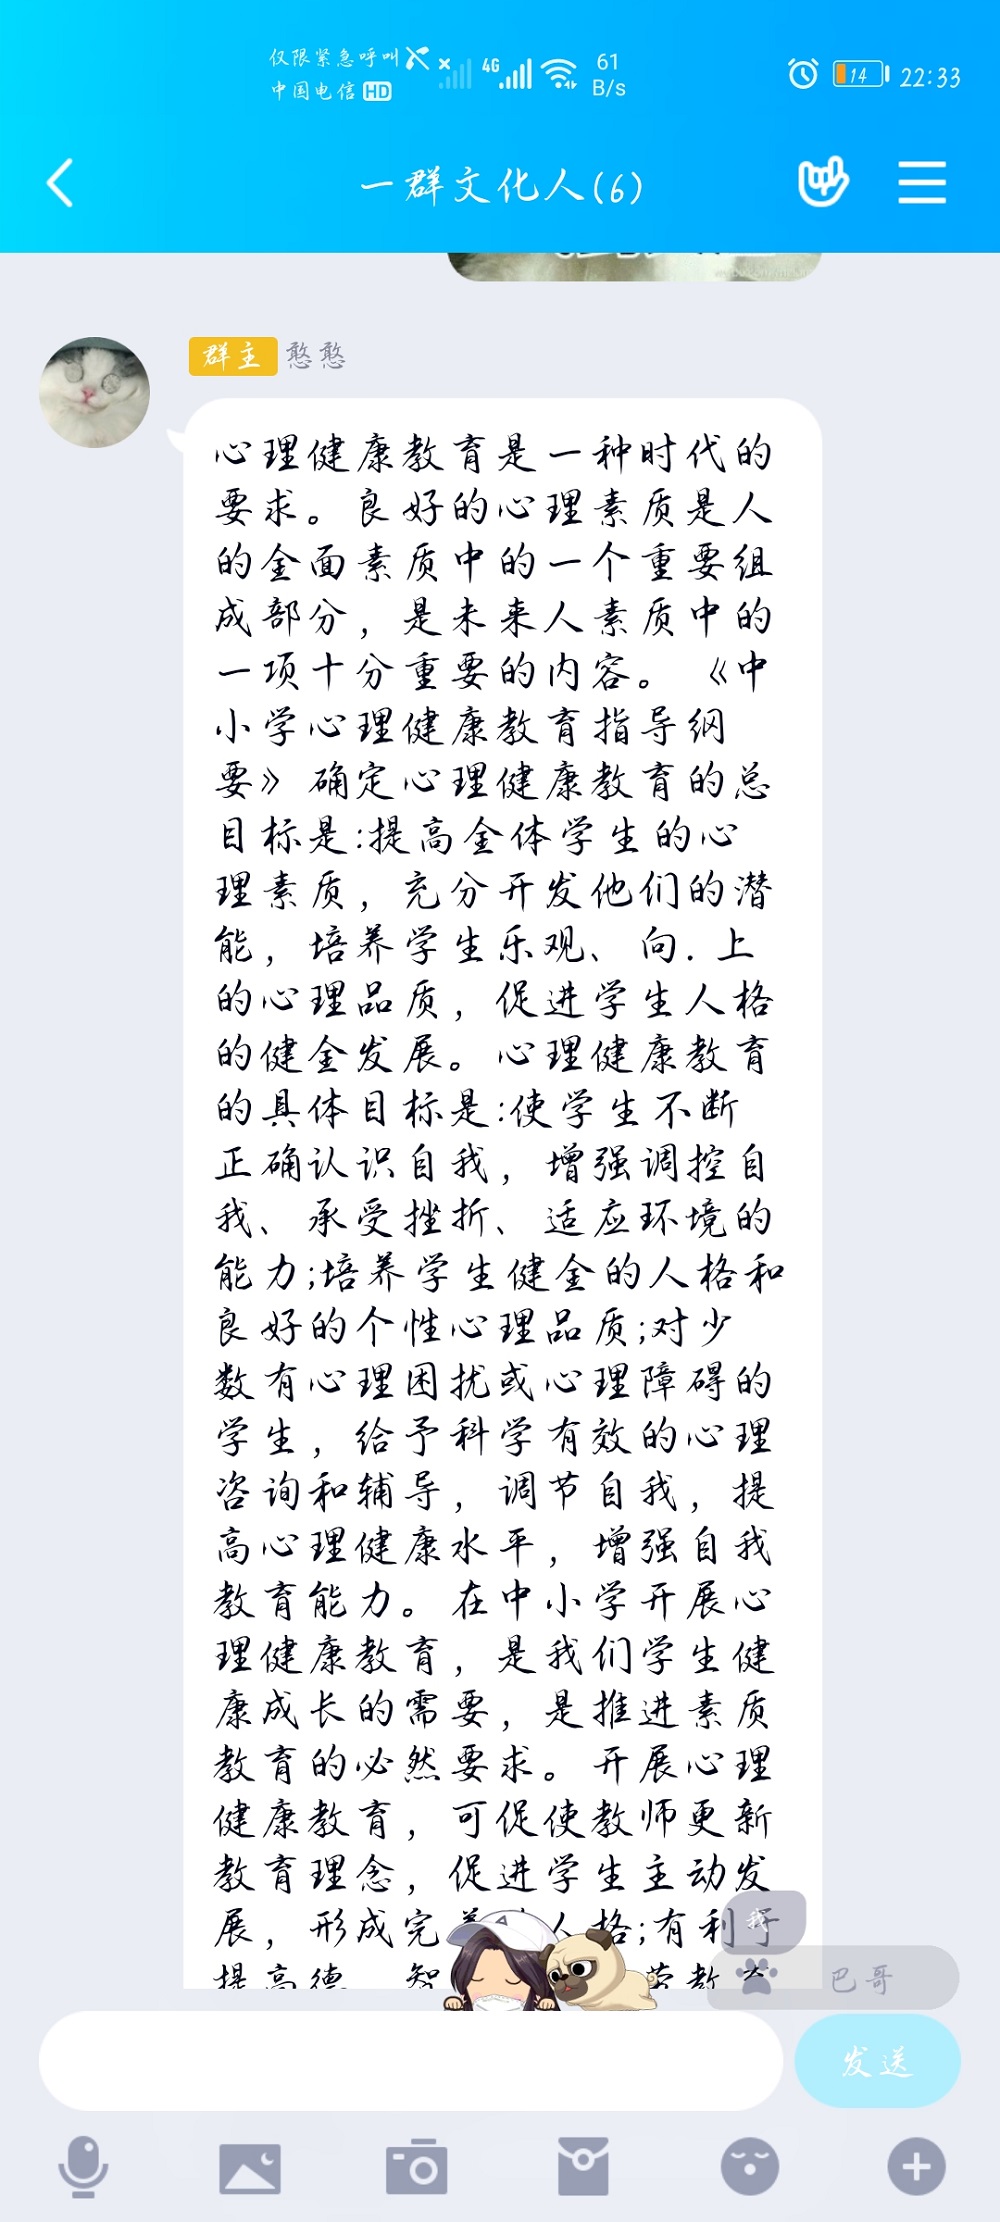 仅限紧急呼叫
中国电信 HD
4G
61
B/s
14
22:33
一群文化人(6)
群主 憨憨
心理健康教育是一种时代的
要求。良好的心理素质是人
的全面素质中的一个重要组
成部分，是未来人素质中的
一项十分重要的内容。《中
小学心理健康教育指导纲
要》确定心理健康教育的总
目标是:提高全体学生的心
理素质，充分开发他们的潜
能，培养学生乐观、向.上
的心理品质，促进学生人格
的健全发展。心理健康教育
的具体目标是:使学生不断
正确认识自我，增强调控自
我、承受挫折、适应环境的
能力;培养学生健全的人格和
良好的个性心理品质;对少
数有心理困扰或心理障碍的
学生，给予科学有效的心理
咨询和辅导，调节自我，提
高心理健康水平，增强自我
教育能力。在中小学开展心
理健康教育，是我们学生健
康成长的需要，是推进素质
教育的必然要求。开展心理
健康教育，可促使教师更新
教育理念，促进学生主动发
展，形成完人格;有利于
提高德、智
我
巴哥
发送